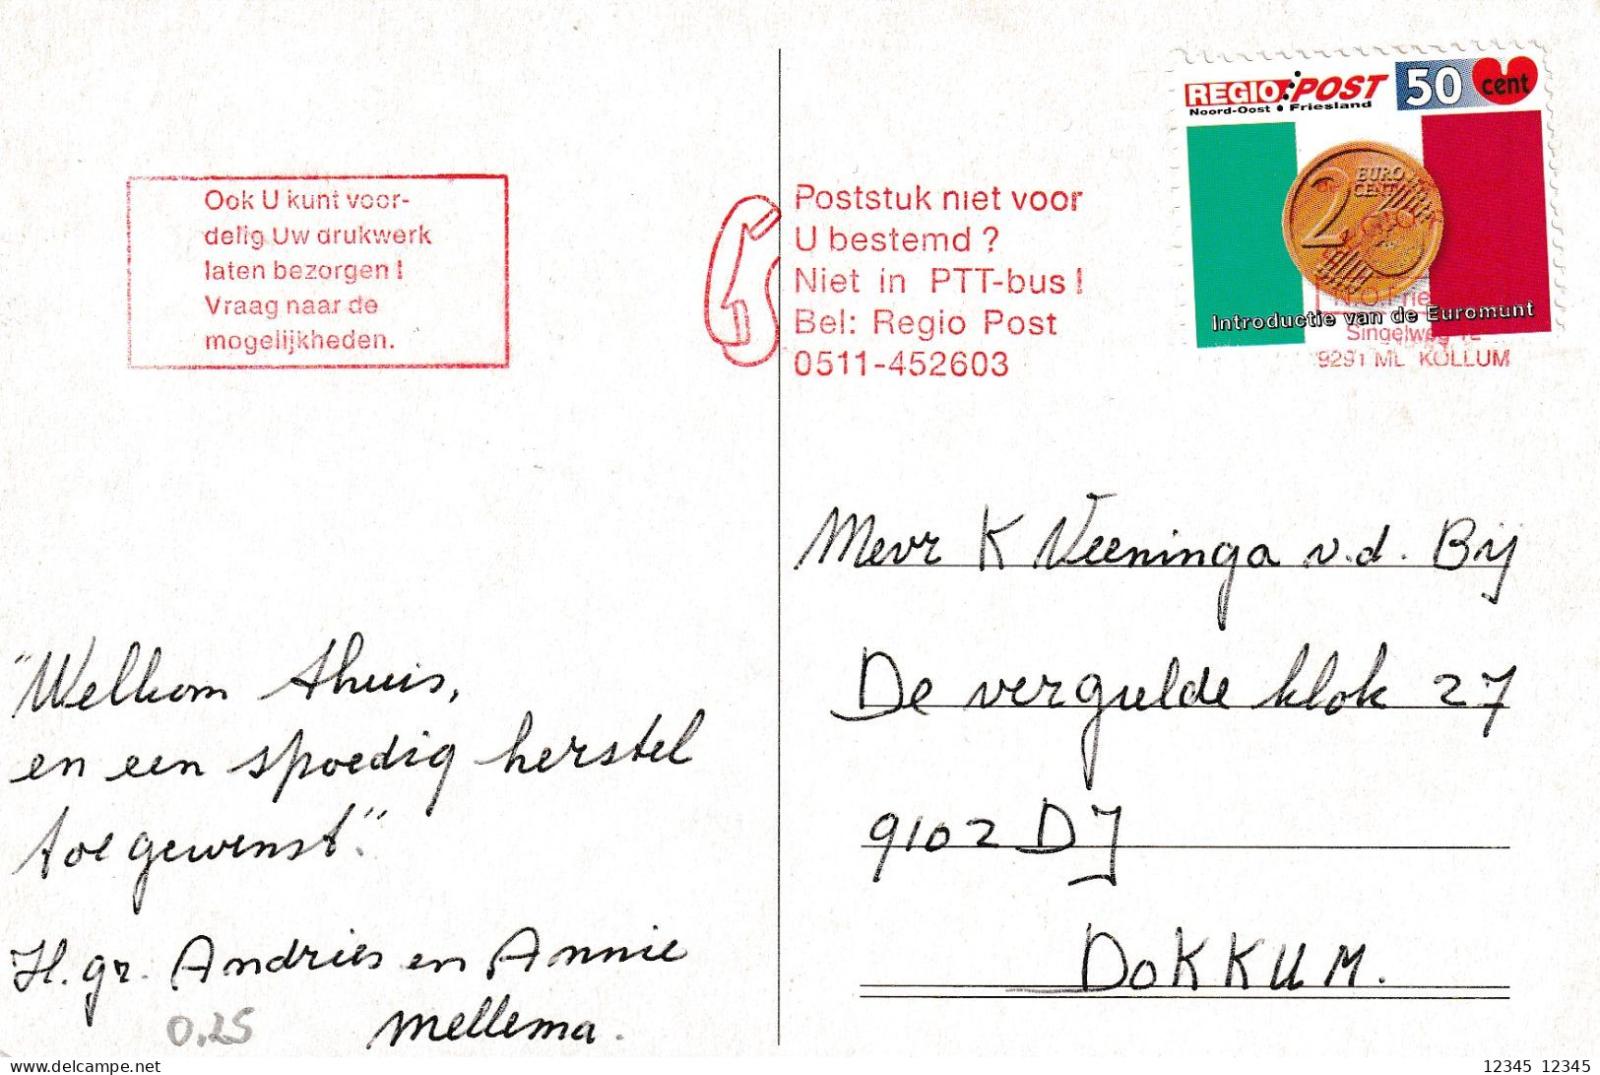 REGIO POST 50 cent
Noord-Oost Friesland
2 EURO
CENT
Introductie van de Euromunt
N.O. Frie
Singelweg 12
9291 ML KOLLUM
Ook U kunt voor-
delig Uw drukwerk
laten bezorgen!
Vraag naar de
mogelijkheden.
Poststuk niet voor
U bestemd?
Niet in PTT-bus!
Bel: Regio Post
0511-452603
"Welkom thuis,
en een spoedig herstel
toegewenst."
H.gr. Andries en Annie
Mellema.
0.25
Mevr K Veeninga v.d. Bij
De vergulde klok 27
9102 DJ
DOKKUM.
delcampe.net
12345 12345